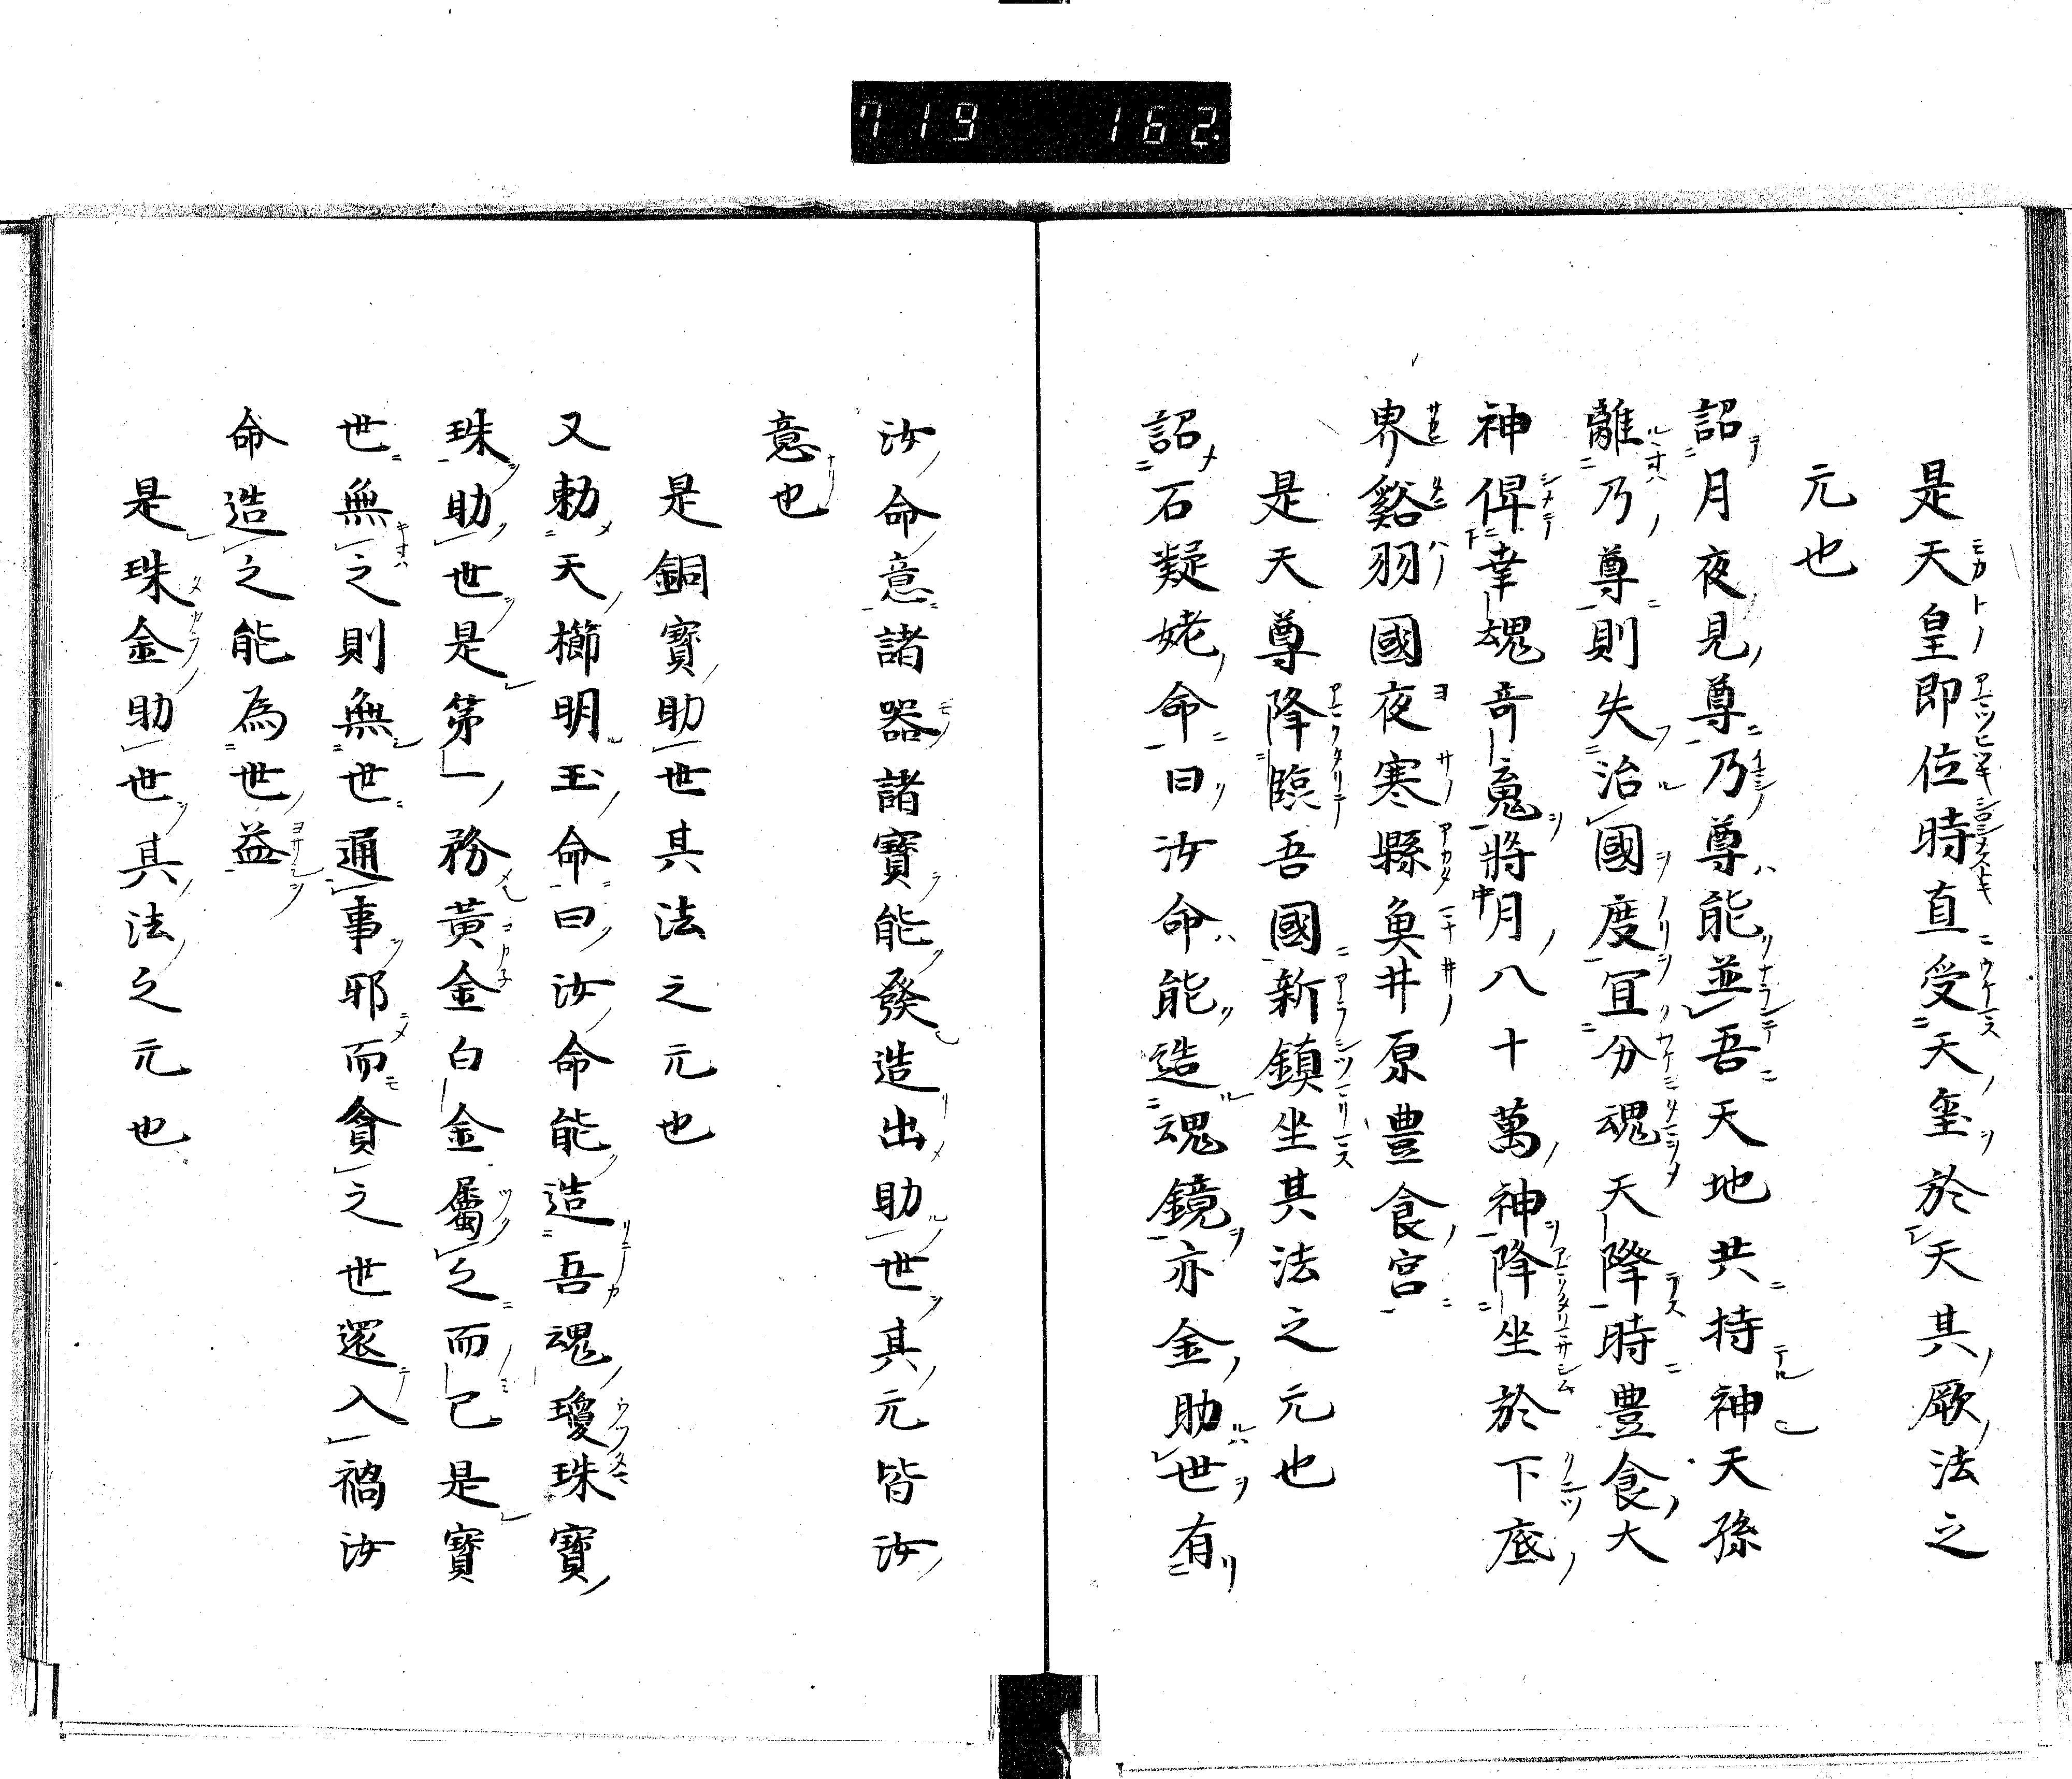 719 162
是天皇即位時直受天璽於天其厥法之
元也
詔月夜見尊乃尊能並吾天地共持神天孫
離乃尊則失治國度宜分魂天降時豊食大
神俾幸魂奇魂將月八十萬神降坐於下底
界谿羽國夜寒縣魚井原豊食宮
是天尊降臨吾國新鎮坐其法之元也
詔石凝姥命曰汝命能造魂鏡亦金助世有
汝命意諸器諸寶能發造出助世其元皆汝
意也
是銅寶助世其法之元也
又勅天櫛明玉命曰汝命能造吾魂瓊珠寶
珠助世是第一務黃金白金屬之而已是寶
世無之則無世通事邪而貪之世還入禍汝
命造之能為世益
是珠金助世其法之元也